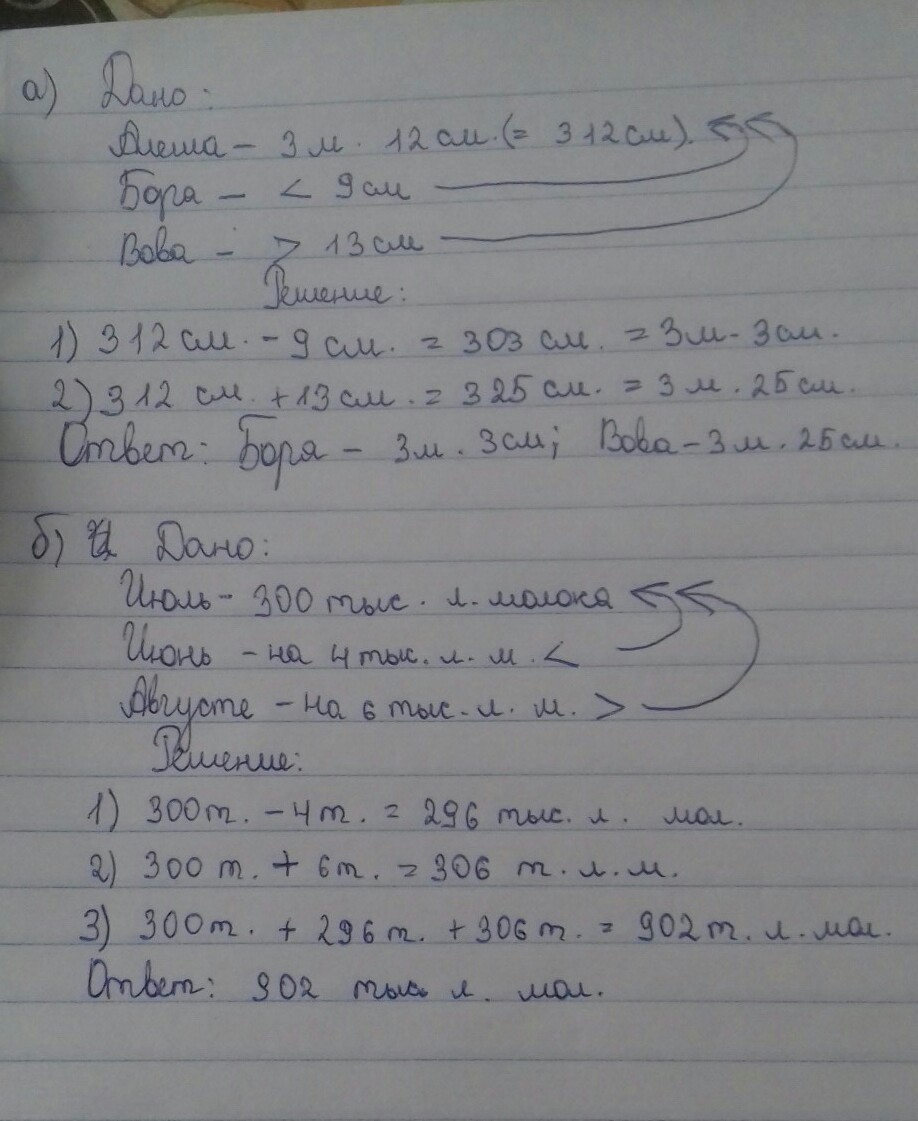 а) Дано:
Алеша – 3 м. 12 см. (= 312 см).
Боря – < 9 см
Вова – > 13 см
Решение:
1) 312 см. – 9 см. = 303 см. = 3м. 3см.
2) 312 см. + 13 см. = 325 см. = 3 м. 25 см.
Ответ: Боря – 3м. 3см; Вова – 3 м. 25 см.
б) Дано:
Июль – 300 тыс. л. молока
Июнь – на 4 тыс. л. м. <
Августе – на 6 тыс. л. м. >
Решение:
1) 300т. – 4т. = 296 тыс. л. мол.
2) 300 т. + 6т. = 306 т. л. м.
3) 300т. + 296 т. + 306 т. = 902 т. л. мол.
Ответ: 902 тыс. л. мол.